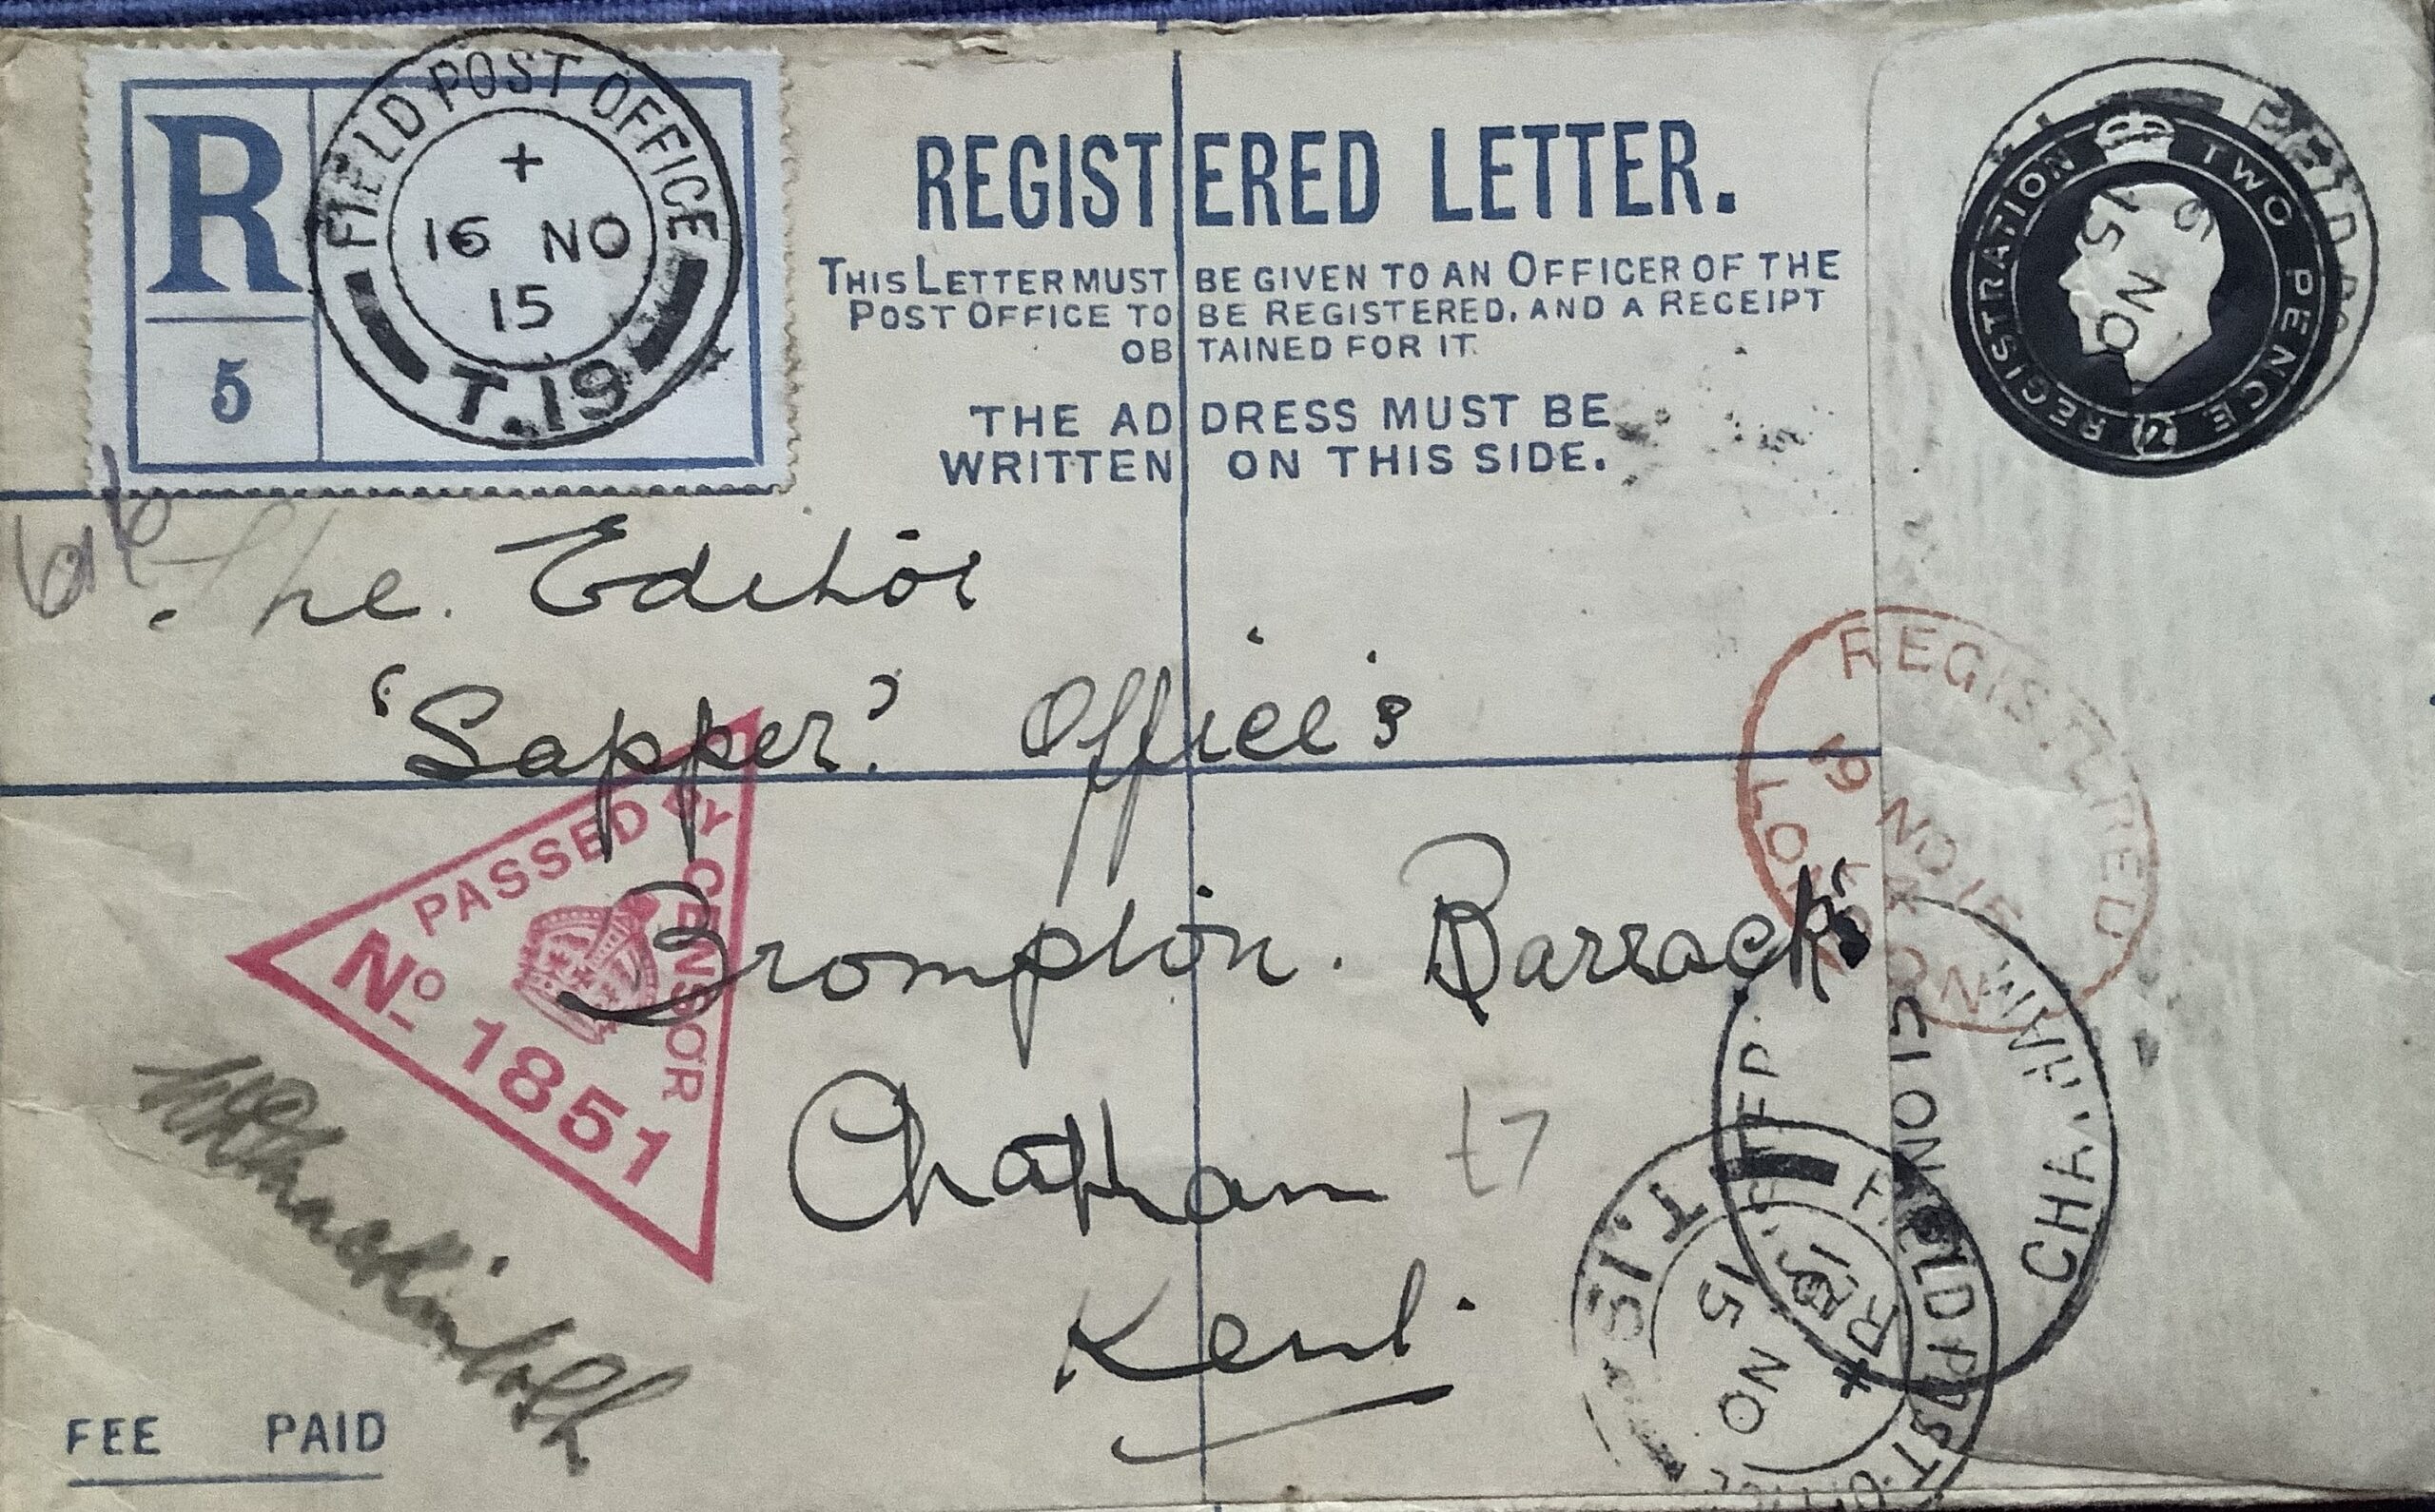 R
5
FIELD POST OFFICE
+
16 NO
15
T.19
REGISTERED LETTER.
THIS LETTER MUST BE GIVEN TO AN OFFICER OF THE
POST OFFICE TO BE REGISTERED, AND A RECEIPT
OBTAINED FOR IT.
THE ADDRESS MUST BE
WRITTEN ON THIS SIDE.
REGISTRATION TWO PENCE 2
FIELD
15 NO
The Editor
'Sapper' Office's
Brompton. Barracks
Chatham
Kent.
PASSED BY CENSOR
No 1851
REGISTERED
19 NO 15
LONDON
CHATHAM
19 NO 15
FIELD POST
15 NO
FEE PAID